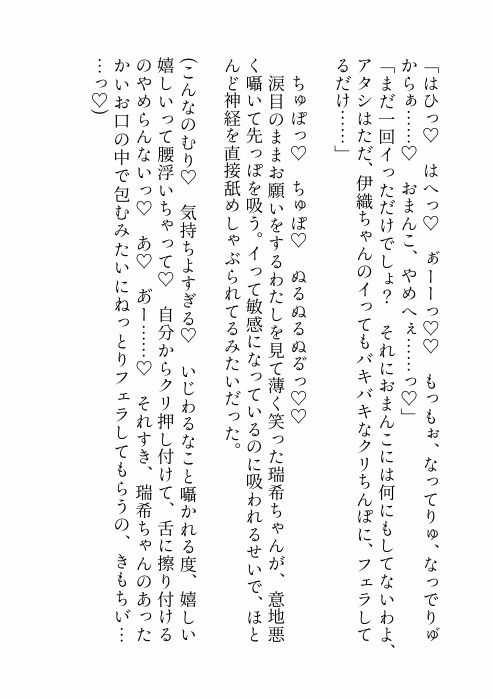 「はひっ♡　はへっ♡　ぉ゛ーーっ♡♡　もっもぉ、なってりゅ、なっでりゅ゛
からぁ……♡　おまんこ、やめへぇ……っ♡」
「まだ一回イっただけでしょ？　それにおまんこには何にもしてないわよ、
アタシはただ、伊織ちゃんのイってもバキバキなクリちんぽに、フェラして
るだけ……」
ちゅぽっ♡　ちゅぽ♡　ぬるぬるぬる゛っ♡♡
涙目のままお願いをするわたしを見て薄く笑った瑞希ちゃんが、意地悪
く囁いて先っぽを吸う。イって敏感になっているのに吸われるせいで、ほと
んど神経を直接舐めしゃぶられてるみたいだった。
(こんなのむり♡　気持ちよすぎる♡　いじわるなこと囁かれる度、嬉しい
嬉しいって腰浮いちゃって♡　自分からクリ押し付けて、舌に擦り付ける
のやめらんないっ♡　あ♡　あ゛ー……♡　それすき、瑞希ちゃんのあった
かいお口の中で包むみたいにねっとりフェラしてもらうの、きもちい゛…
…っ♡)